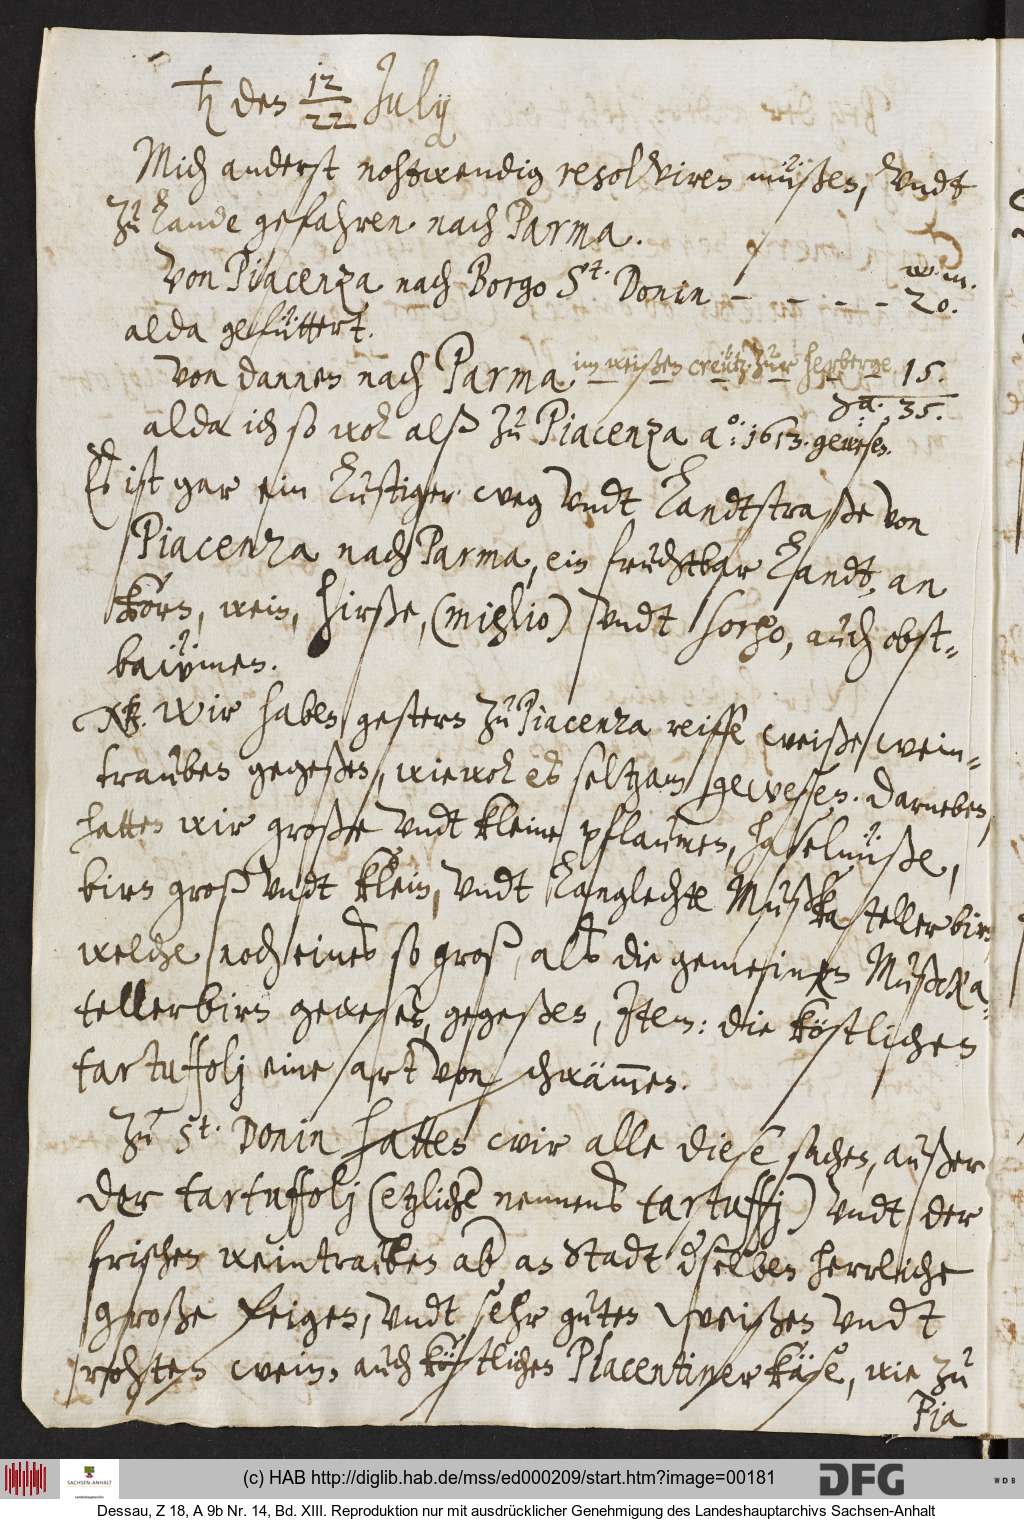 ♄ den 12/22 July
Mich anderst nohtwendig resolviren müßen, vndt
zu Lande gefahren nach Parma.
w. m.
Von Piacenza nach Borgo St. Donin – – – – 20.
alda gefüttert.
von dannen nach Parma, im weißen creütz zur herberge 15.
35.
alda ich so wol alß zu Piacenza ao: 1613. gewesen.
Es ist gar ein Lustiger weg vndt Landtstraße von
Piacenza nach Parma, ein fruchtbar Landt, an
korn, wein, hirße, (miglio) vndt sorgo, auch obst-
baüme.
NB. Wir haben gestern zu Piacenza reiffe weiße wein-
trauben gegeßen, wiewol es seltzam gewesen. Darneben,
hatten wir große vndt kleine pflaumen, haselnüße,
birn groß vndt klein, vndt Langlechte Mußka tellerbirn
welche noch eines so groß, als die gemeinen Mußka-
tellerbirn gewesen, gegeßen, Item: die köstlichen
tartuffolj eine art von schwämmen.
Zu St. Donin hatten wir alle diese sachen, außer
der tartuffolj (etzliche nennens tartuffj) vndt der
frischen weintrauben ab an Stadt derselben herrliche
große feigen, vndt sehr guten weißen vndt
rohten wein, auch köstlichen Placentiner käse, wie zu
Pia
(c) HAB http://diglib.hab.de/mss/ed000209/start.htm?image=00181
SACHSEN-ANHALT
DFG
WDB
Dessau, Z 18, A 9b Nr. 14, Bd. XIII. Reproduktion nur mit ausdrücklicher Genehmigung des Landeshauptarchivs Sachsen-Anhalt